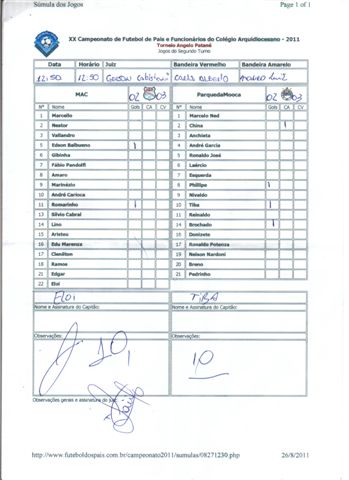 Súmula dos Jogos Page 1 of 1
XX Campeonato de Futebol de Pais e Funcionários do Colégio Arquidiocesano - 2011
Torneio Angelo Patané
Jogos do Segundo Turno
Data Horário Juiz Bandeira Vermelho Bandeira Amarelo
12:50 12:50
MAC 02 03 ParquedaMooca 02 03
Nº Nome Gols CA CV Nº Nome Gols CA CV
1 Marcello 1 Marcelo Ned
2 Nestor 2 China
3 Valiandro 3 Anchieta
5 Edson Balbueno 4 André Garcia
6 Gibinha 5 Ronaldo José
7 Fábio Pandolfi 6 Laércio
8 Amaro 7 Esquerda
9 Marinézio 8 Phillipe
10 André Carioca 9 Nivaldo
11 Romarinho 10 Tiba
13 Silvio Cabral 11 Reinaldo
14 Lino 14 Brochado
15 Aristeu 16 Donizete
16 Edu Marenza 17 Ronaldo Potenza
17 Clenilton 19 Nelson Nardoni
18 Ramos 20 Breno
21 Edgar 21 Pedrinho
22 Eloi
ELOI TIBA
Nome e Assinatura do Capitão: Nome e Assinatura do Capitão:
Observações: Observações:
10
Observações gerais e assinatura do juiz:
http://www.futeboldospais.com.br/campeonato2011/sumulas/08271230.php 26/8/2011